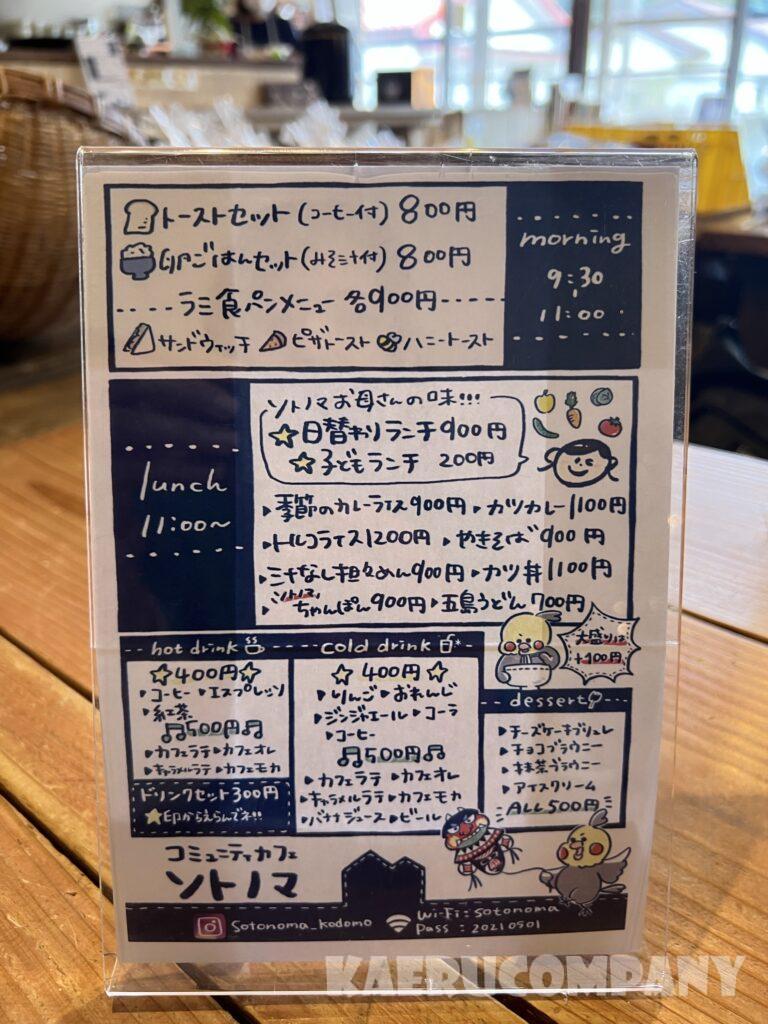 トーストセット(コーヒー付)800円
卵ごはんセット(みそ汁付)800円
ラミ食パンメニュー 各900円
サンドウィッチ ピザトースト ハニートースト
morning
9:30
11:00
lunch
11:00~
ソトノマお母さんの味!!!
日替わりランチ900円
子どもランチ 200円
▸季節のカレーライス900円 ▸カツカレー1100円
▸トルコライス1200円 ▸やきそば900円
▸汁なし担々めん900円 ▸カツ丼1100円
▸ソトノマちゃんぽん900円 ▸五島うどん700円
大盛りは
+100円
hot drink
☆400円☆
▸コーヒー ▸エスプレッソ
▸紅茶
♫500円♫
▸カフェラテ ▸カフェオレ
▸キャラメルラテ ▸カフェモカ
ドリンクセット300円
☆印からえらんでネ!!
cold drink
☆400円☆
▸りんご ▸おれんじ
▸ジンジャエール ▸コーラ
▸コーヒー
♫500円♫
▸カフェラテ ▸カフェオレ
▸キャラメルラテ ▸カフェモカ
▸バナナジュース ▸ビール
dessert
▸チーズケーキブリュレ
▸チョコブラウニー
▸抹茶ブラウニー
▸アイスクリーム
ALL500円
コミュニティカフェ
ソトノマ
Sotonoma_kodomo
Wi-Fi:sotonoma
Pass:20210501
KAERUCOMPANY